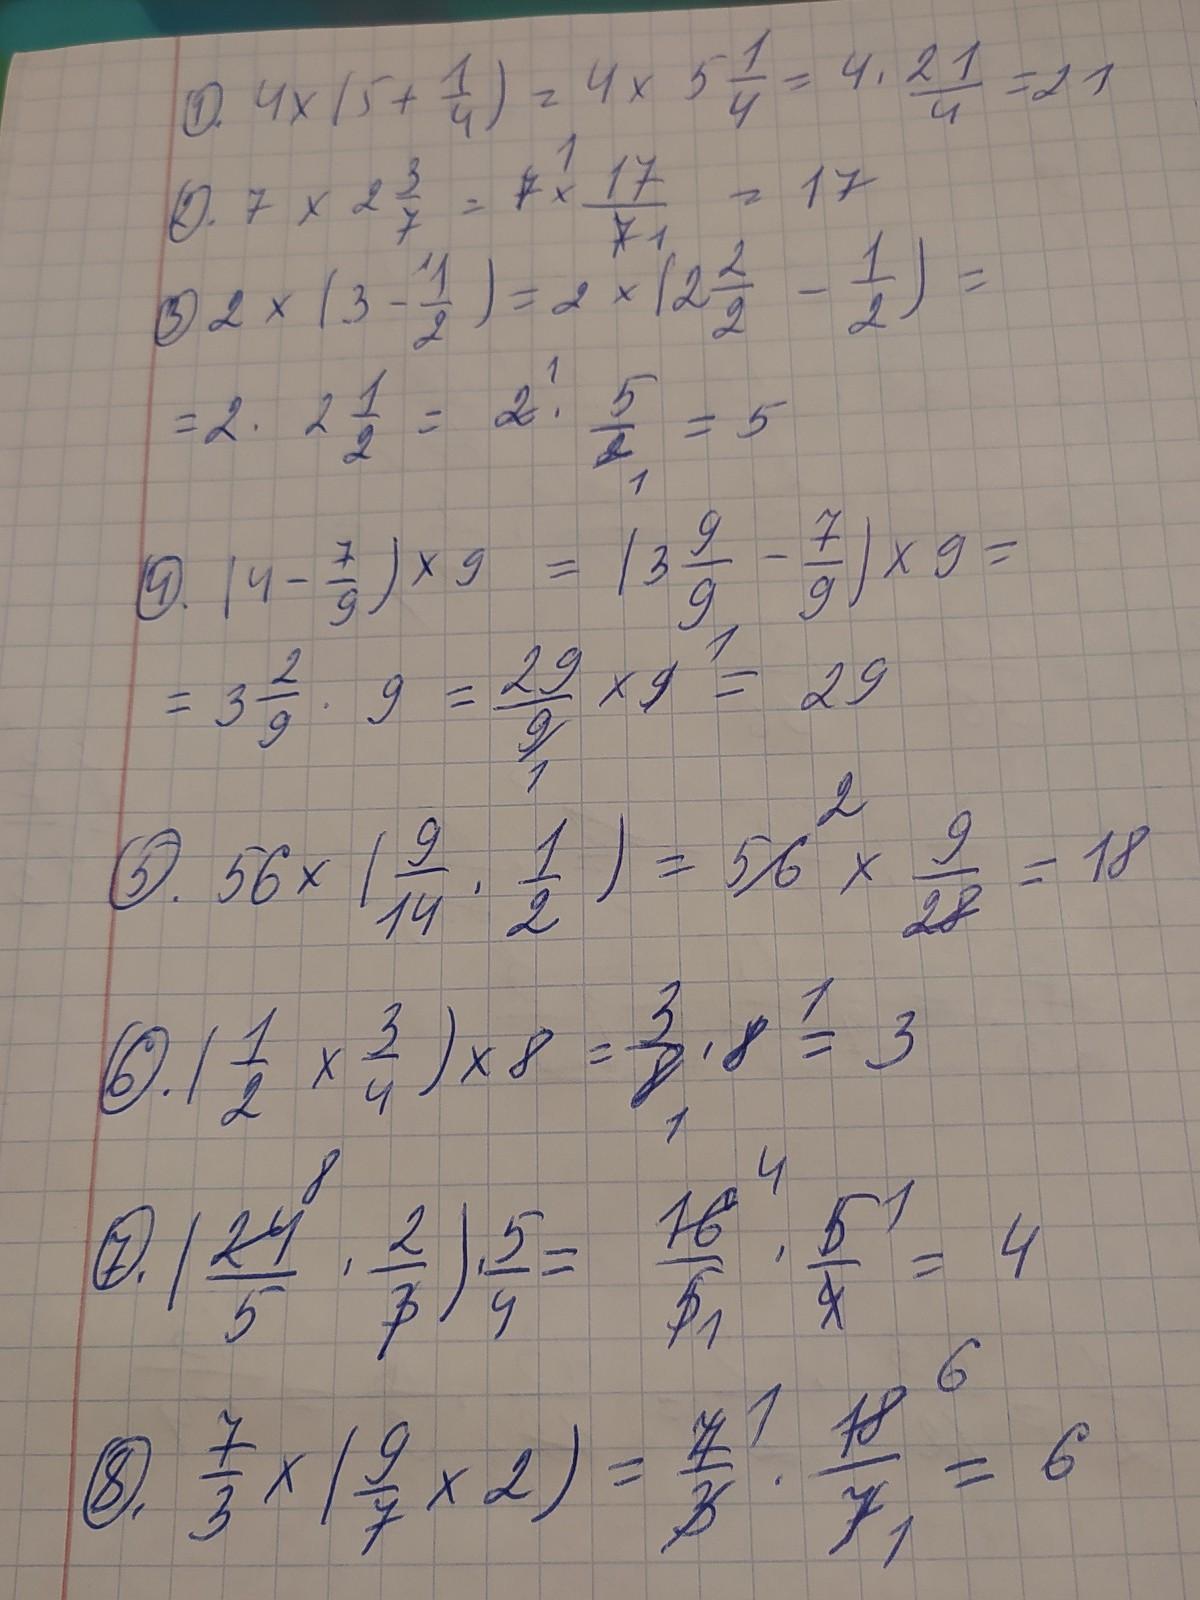 1. 4 × (5 + 1/4) = 4 × 5 1/4 = 4 · 21/4 = 21
2. 7 × 2 3/7 = 7 1 × 17/7 1 = 17
3 2 × (3 - 1/2) = 2 × (2 2/2 - 1/2) =
= 2 · 2 1/2 = 2 1 · 5/2 1 = 5
4. (4 - 7/9) × 9 = (3 9/9 - 7/9) × 9 =
= 3 2/9 · 9 = 29/9 1 × 9 1 = 29
5. 56 × (9/14 · 1/2) = 56 2 × 9/28 = 18
6. (1/2 × 3/4) × 8 = 3/8 1 · 8 1 = 3
7. (24 8/5 · 2/3) · 5/4 = 16 4/5 1 · 5 1/4 = 4
8. 7/3 × (9/7 × 2) = 7 1/3 · 18 6/7 1 = 6